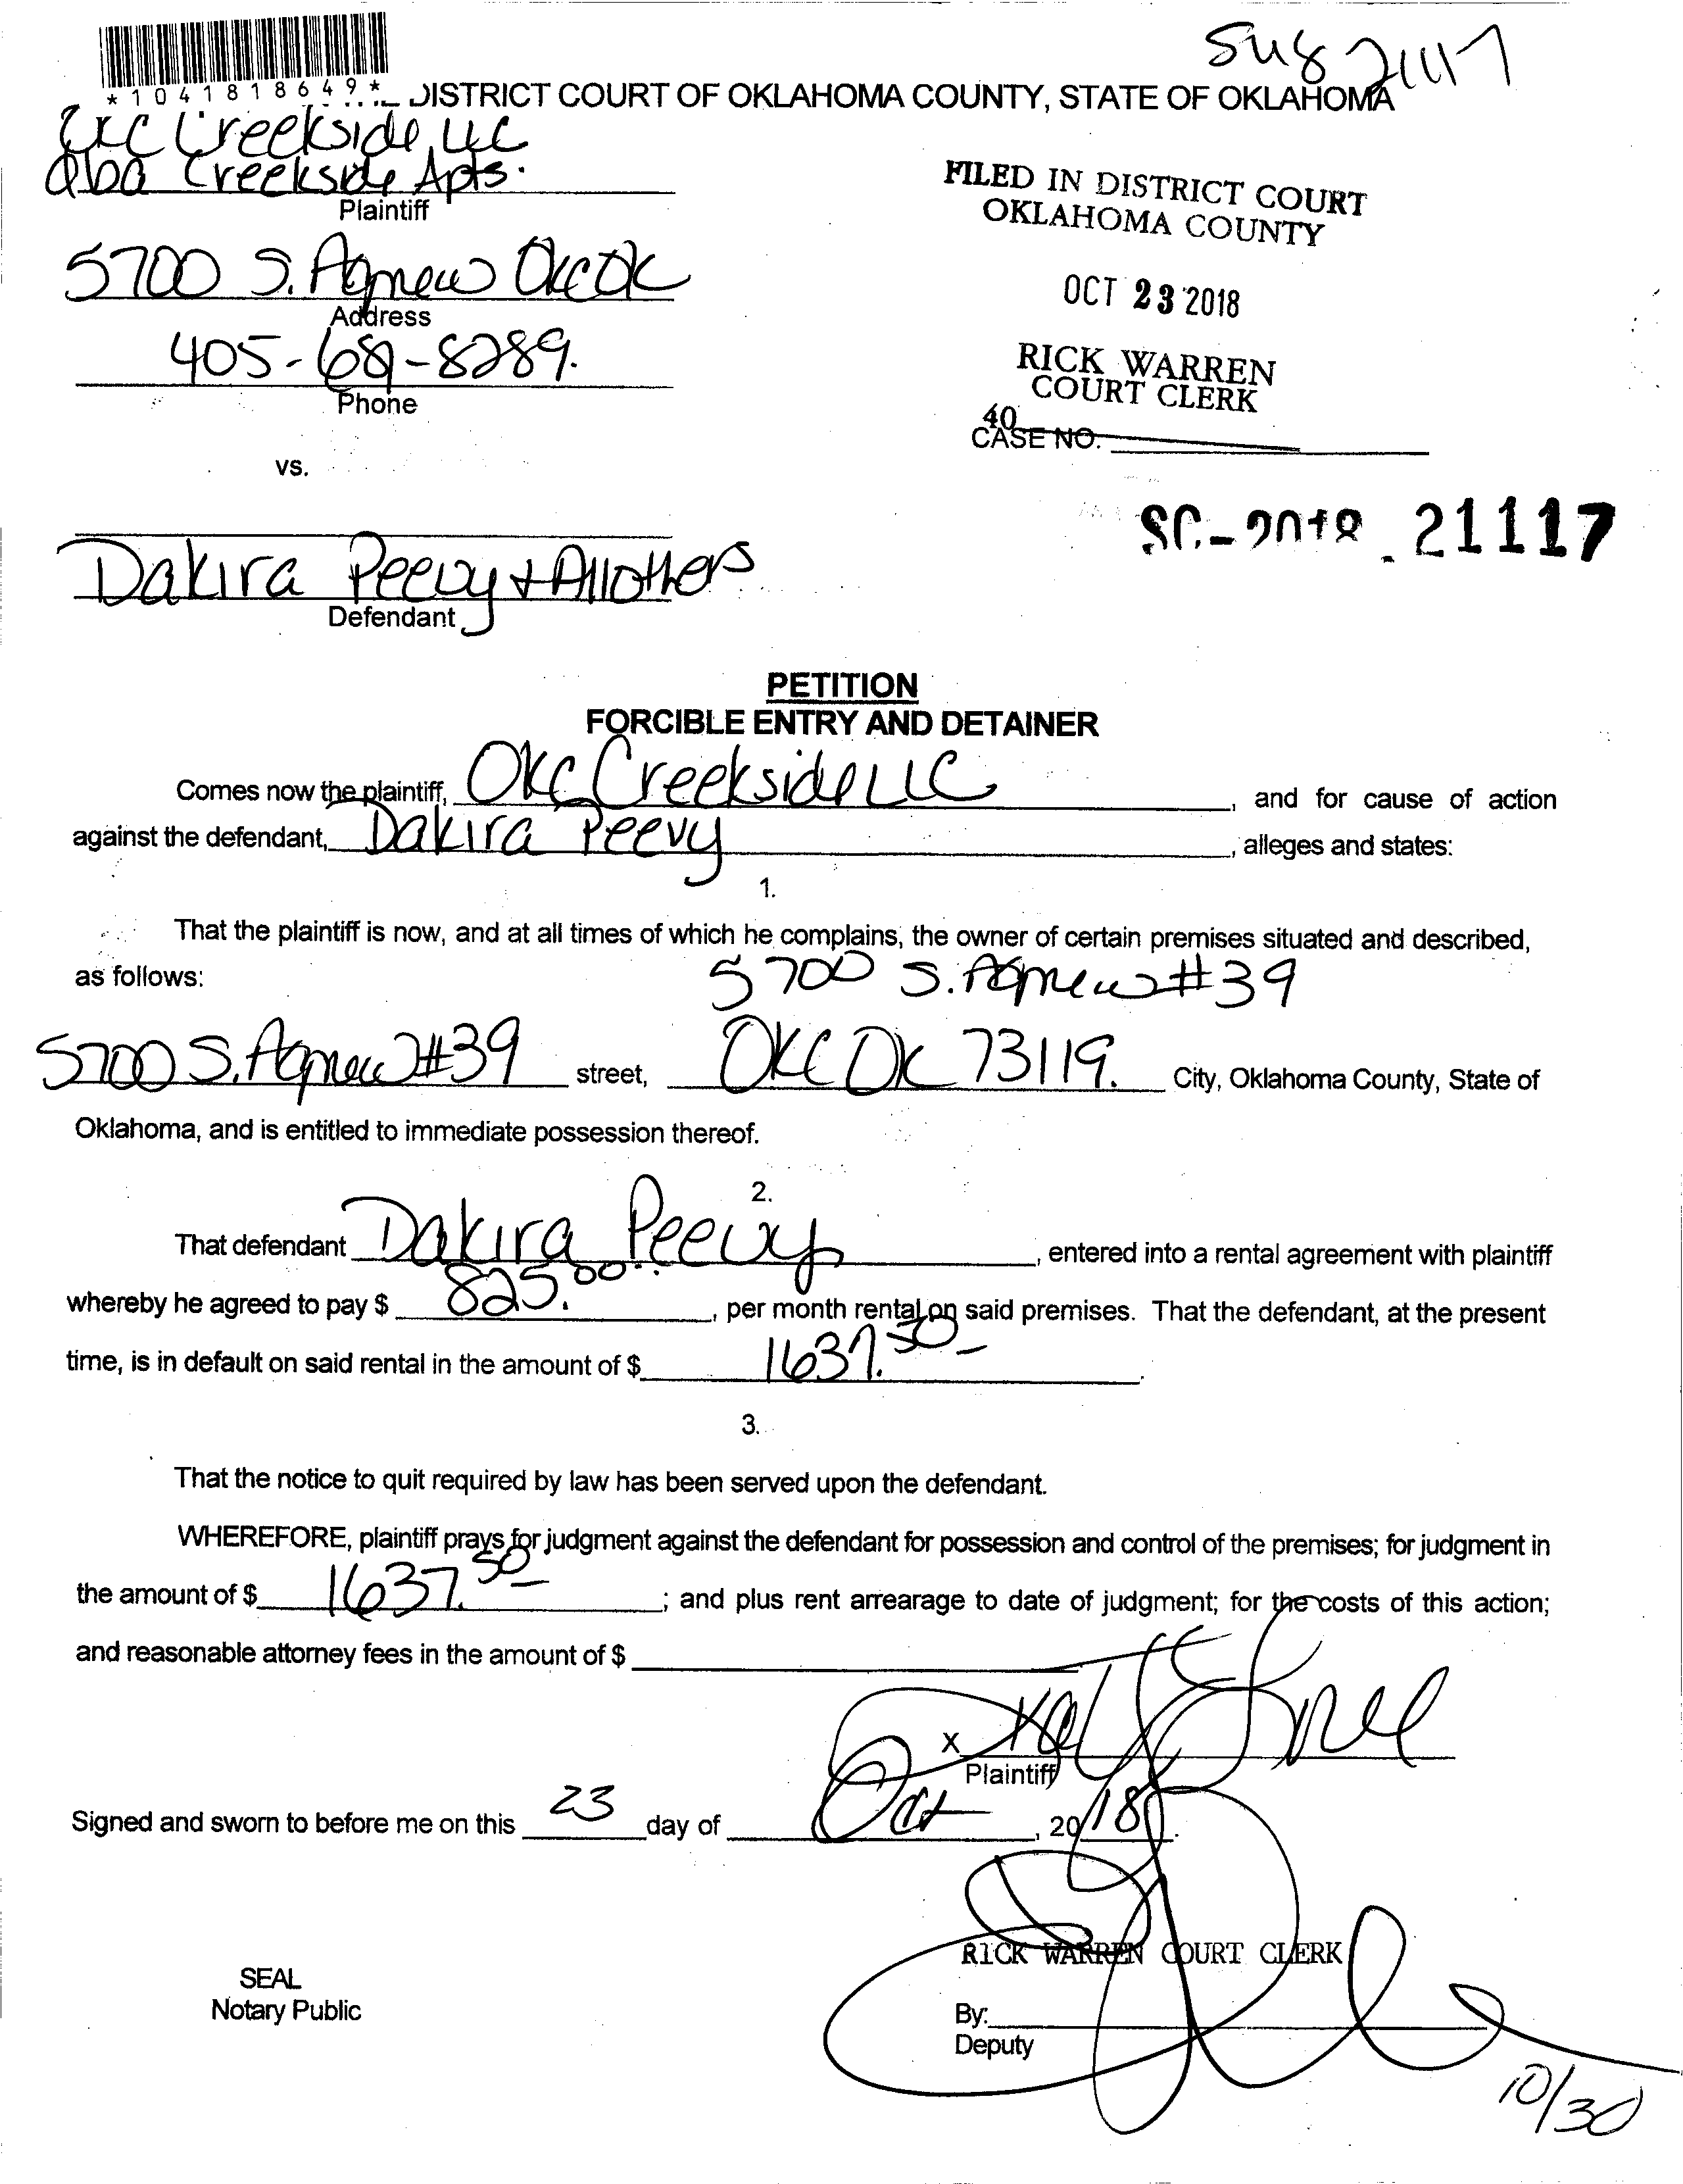 *1041818649*
DISTRICT COURT OF OKLAHOMA COUNTY, STATE OF OKLAHOMA
OKC Creekside, LLC
dba Creekside Apts.
Plaintiff
5700 S. Agnew OKC OK
Address
Phone
FILED IN DISTRICT COURT
OKLAHOMA COUNTY
OCT 23 2018
RICK WARREN
COURT CLERK
40
CASE NO.
vs.
SC-2018 - 21117
Dakira Peevy + All others
Defendant
PETITION
FORCIBLE ENTRY AND DETAINER
Comes now the plaintiff, OKC Creekside LLC, and for cause of action
against the defendant, Dakira Peevy, alleges and states:
1.
That the plaintiff is now, and at all times of which he complains, the owner of certain premises situated and described,
as follows: 5700 S. Agnew #39
5700 S. Agnew #39 street, OKC OK 73119. City, Oklahoma County, State of
Oklahoma, and is entitled to immediate possession thereof.
2.
That defendant Dakira Peevy, entered into a rental agreement with plaintiff
whereby he agreed to pay $ 825.00, per month rental on said premises. That the defendant, at the present
time, is in default on said rental in the amount of $ 1637.50.
3.
That the notice to quit required by law has been served upon the defendant.
WHEREFORE, plaintiff prays for judgment against the defendant for possession and control of the premises; for judgment in
the amount of $ 1637.50; and plus rent arrearage to date of judgment; for the costs of this action;
and reasonable attorney fees in the amount of $
X
Plaintiff
Signed and sworn to before me on this 23 day of Oct, 2018.
RICK WARREN COURT CLERK
SEAL
Notary Public
By:
Deputy
10/30